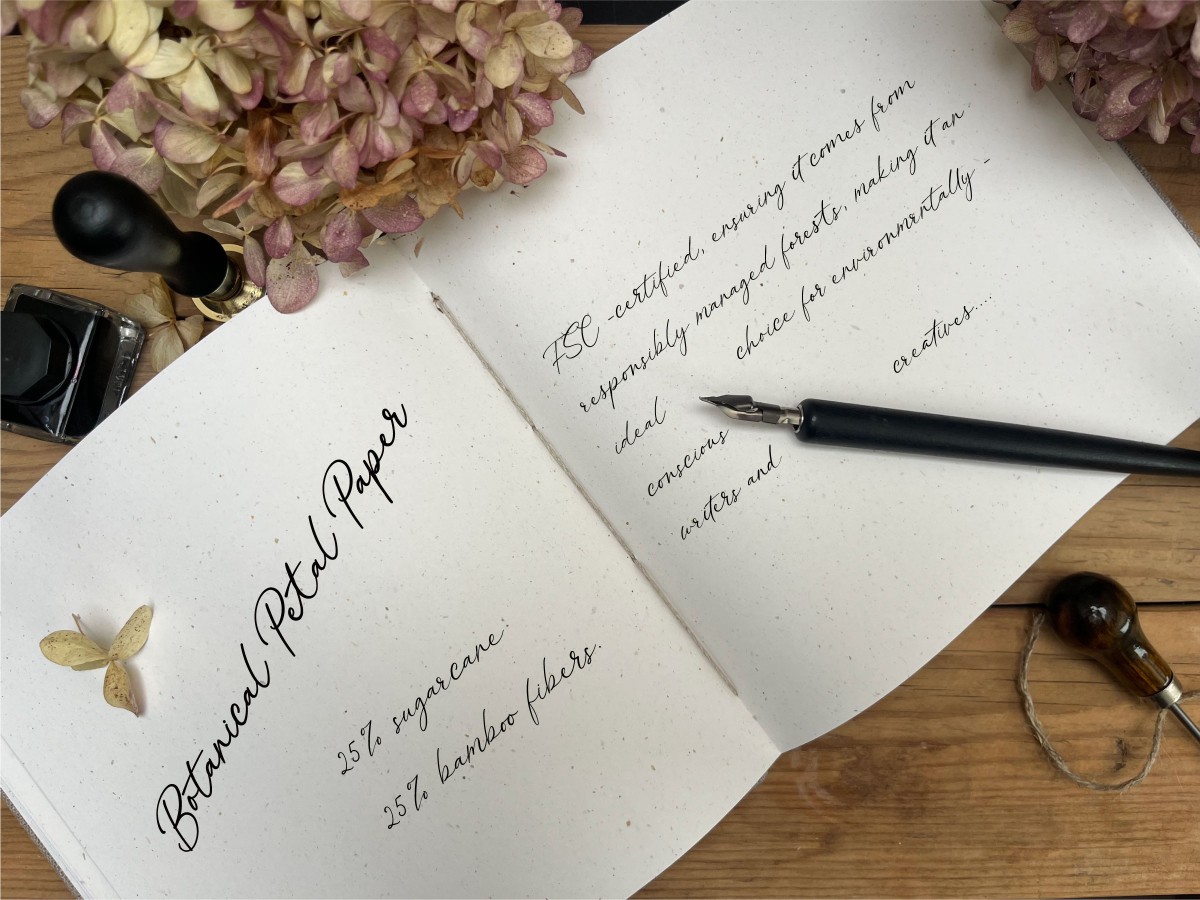 Botanical Petal Paper
25% sugarcane
25% bamboo fibers.
FSC -certified, ensuring it comes from
responsibly managed forests, making it an
ideal choice for environmentally -
conscious
writers and creatives....